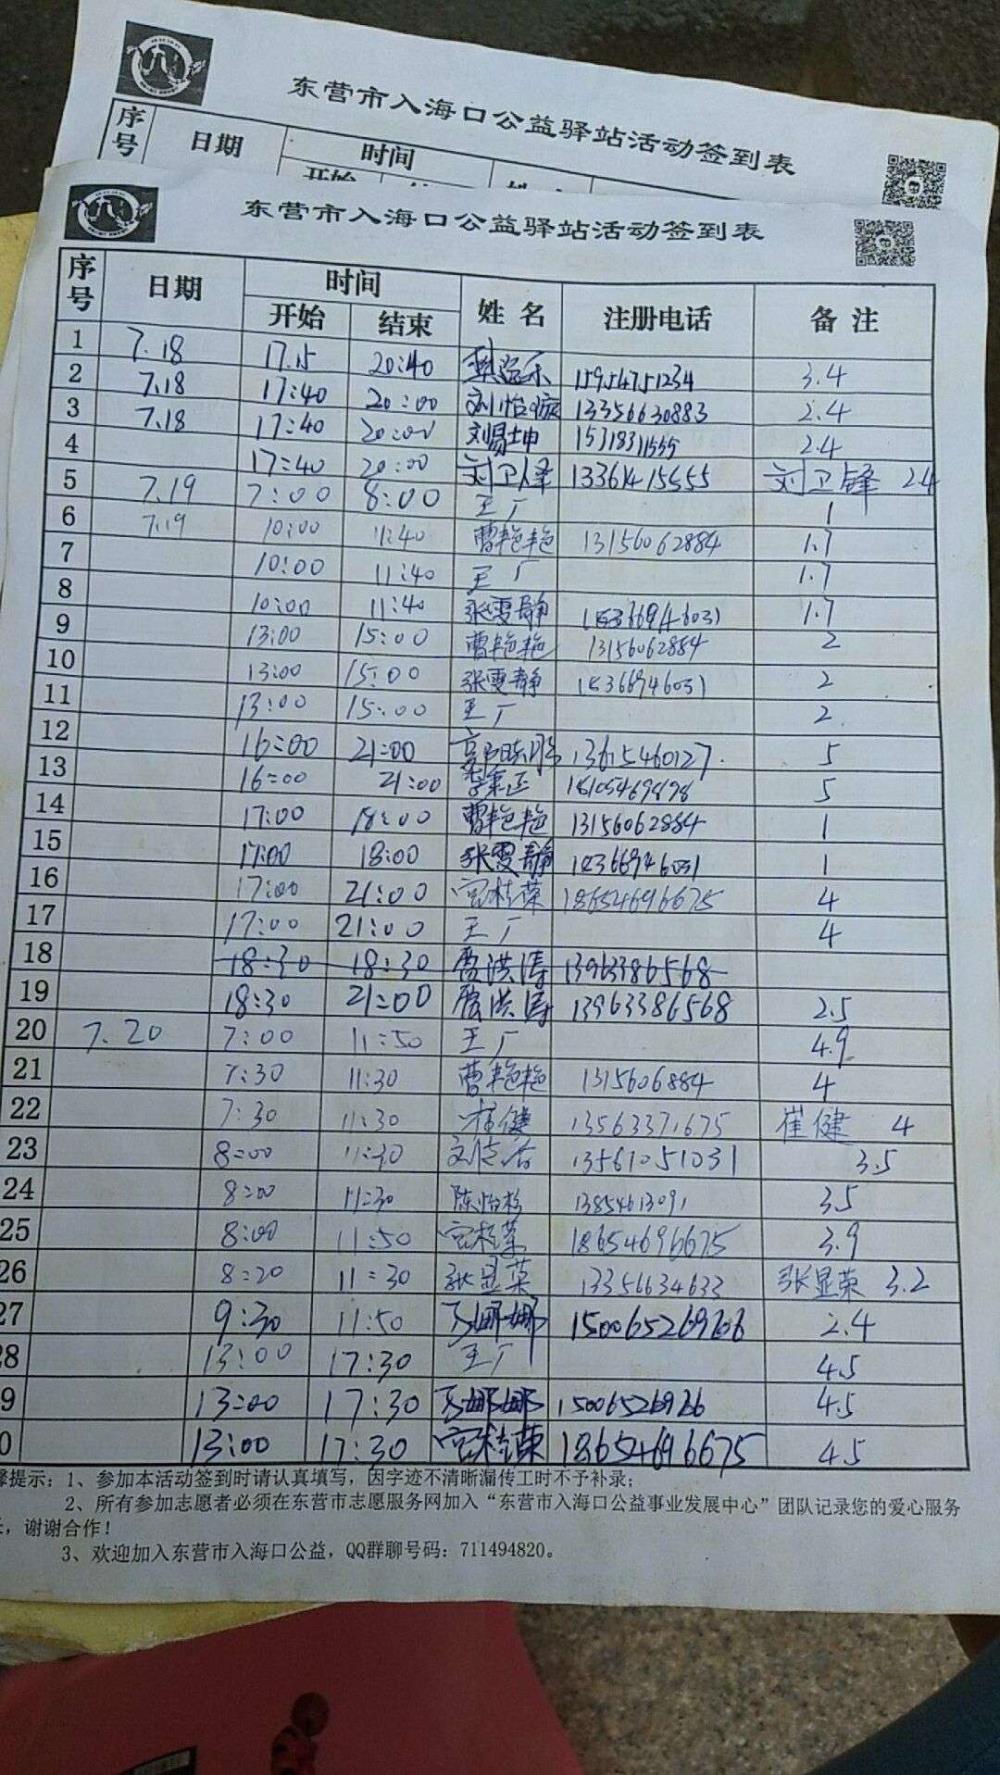 东营市入海口公益驿站活动签到表
序号 日期 时间
开始
东营市入海口公益驿站活动签到表
序号 日期 时间 姓名 注册电话 备注
开始 结束
1 7.18 17.15 20:40 15954751234 3.4
2 7.18 17:40 20:00 刘怡璇 13356630883 2.4
3 7.18 17:40 20:00 刘易坤 15318311555 2.4
4 17:40 20:00 刘卫锋 13361415555 刘卫锋 2.4
5 7.19 7:00 8:00 王广 1
6 7.19 10:00 11:40 曹艳艳 13156062884 1.7
7 10:00 11:40 王广 1.7
8 10:00 11:40 张雯静 1.7
9 13:00 15:00 曹艳艳 13156062884 2
10 13:00 15:00 张雯静 15366946031 2
11 13:00 15:00 王广 2
12 16:00 21:00 13615460127 5
13 16:00 21:00 李秉正 5
14 17:00 18:00 曹艳艳 13156062884 1
15 17:00 18:00 张雯静 15366946031 1
16 17:00 21:00 宫桂荣 18654696675 4
17 17:00 21:00 王广 4
18 18:30 18:30 贾洪涛 13963386568
19 18:30 21:00 贾洪涛 13963386568 2.5
20 7.20 7:00 11:50 王广 4.9
21 7:30 11:30 曹艳艳 1315606884 4
22 7:30 11:30 崔健 13563371675 崔健 4
23 8:00 11:30 13561051031 3.5
24 8:00 11:30 陈怡杉 13854613091 3.5
25 8:00 11:50 宫桂荣 18654696675 3.9
26 8:20 11:30 张显荣 13356634633 张显荣 3.2
27 9:30 11:50 15006526966 2.4
28 13:00 17:30 王广 4.5
9 13:00 17:30 15006526966 4.5
0 13:00 17:30 宫桂荣 18654696675 4.5
馨提示：1、参加本活动签到时请认真填写，因字迹不清晰漏传工时不予补录；
2、所有参加志愿者必须在东营市志愿服务网加入“东营市入海口公益事业发展中心”团队记录您的爱心服务
，谢谢合作！
3、欢迎加入东营市入海口公益，QQ群聊号码：711494820。